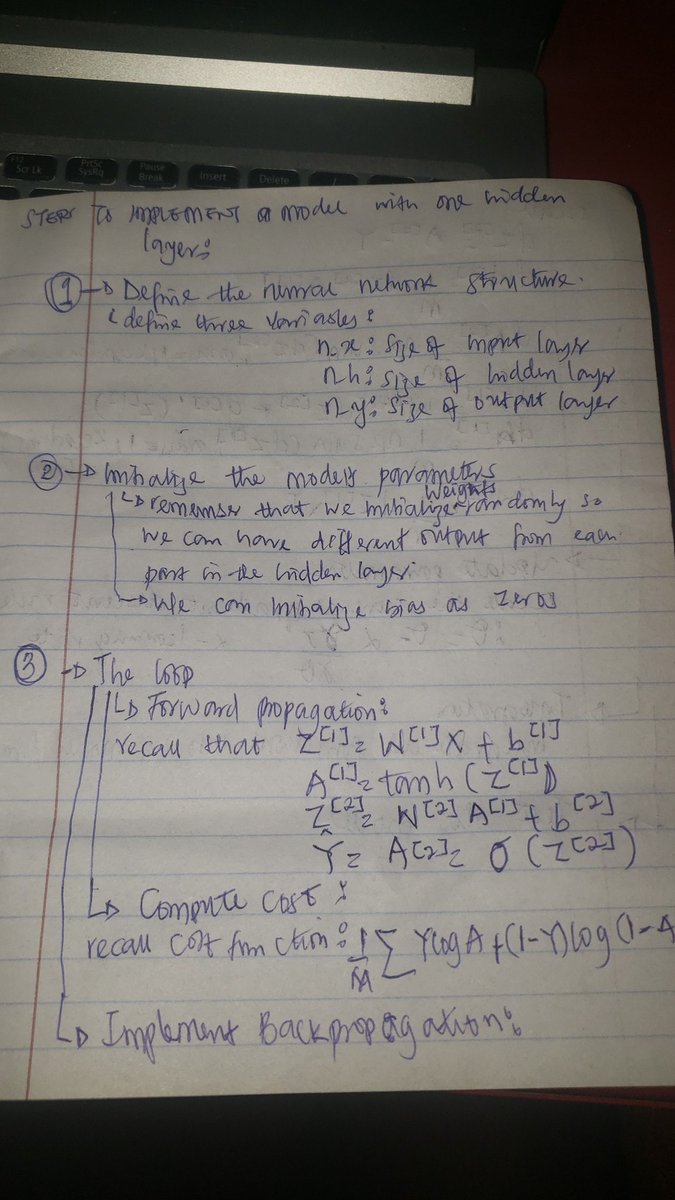 F12
Scr Lk
PrtSc
SysRq
Pause
Break
Insert
Delete
STEPS TO IMPLEMENT a model with one hidden
layer:
① → Define the neural network structure.
↳ define three variables:
n_x: size of input layer
n_h: size of hidden layer
n_y: size of output layer
② → Initialize the models parameters
↳ remember that we initialize weights randomly so
we can have different output from each
part in the hidden layer.
↳ We can initialize bias as zeros
③ → The loop
↳ Forward propagation:
recall that Z[1] = W[1]X + b[1]
A[1] = tanh(Z[1])
Z[2] = W[2] A[1] + b[2]
Ŷ = A[2] = σ(Z[2])
↳ Compute cost:
recall cost function: 1/M Σ YlogA + (1-Y)log(1-A
↳ Implement Backpropagation: